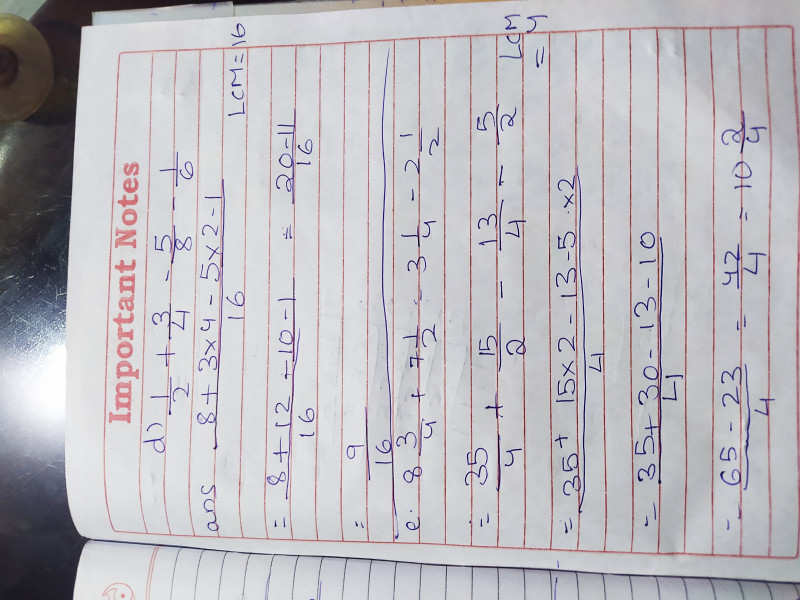 Important Notes
d) 1/2 + 3/4 - 5/8 - 1/6
ans 8 + 3x4 - 5x2 - 1 / 16 LCM = 16
= 8 + 12 - 10 - 1 / 16 = 20 - 11 / 16
= 9 / 16
e. 8 3/4 + 7 1/2 - 3 1/4 - 2 1/2
= 35/4 + 15/2 - 13/4 - 5/2 LCM = 4
= 35 + 15x2 - 13 - 5 x2 / 4
= 35 + 30 - 13 - 10 / 4
= 65 - 23 / 4 = 42/4 = 10 2/4